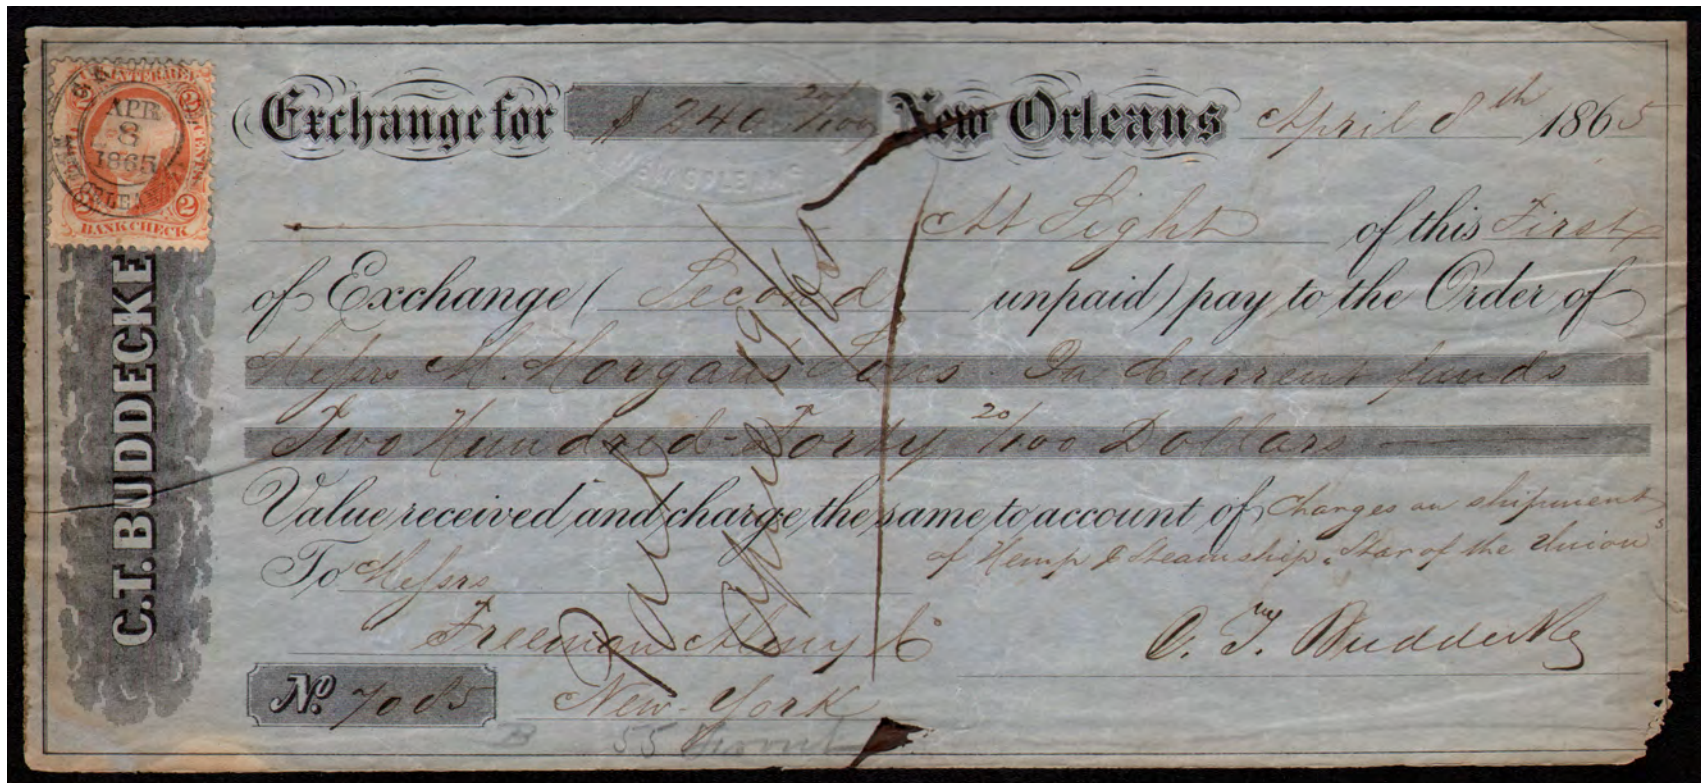 U.S. INTER. REV.
2 CENTS
APR
8
1865
NEW ORLEANS
2
BANK CHECK
C.T. BUDDECKE
Exchange for $ 240 20/100 New Orleans April 8th 1865
NEW ORLEANS
At Sight of this First
of Exchange ( Second unpaid ) pay to the Order of
Messrs M. Morgans Sons In Current funds
Two Hundred Forty 20/100 Dollars
Value received and charge the same to account of Charges on shipment
of Hemp Steamship "Star of the Union"
To Messrs
Freeman & Co
C. Ty Buddecke
No. 7085 New York
55 Front
Paid
April 19/65